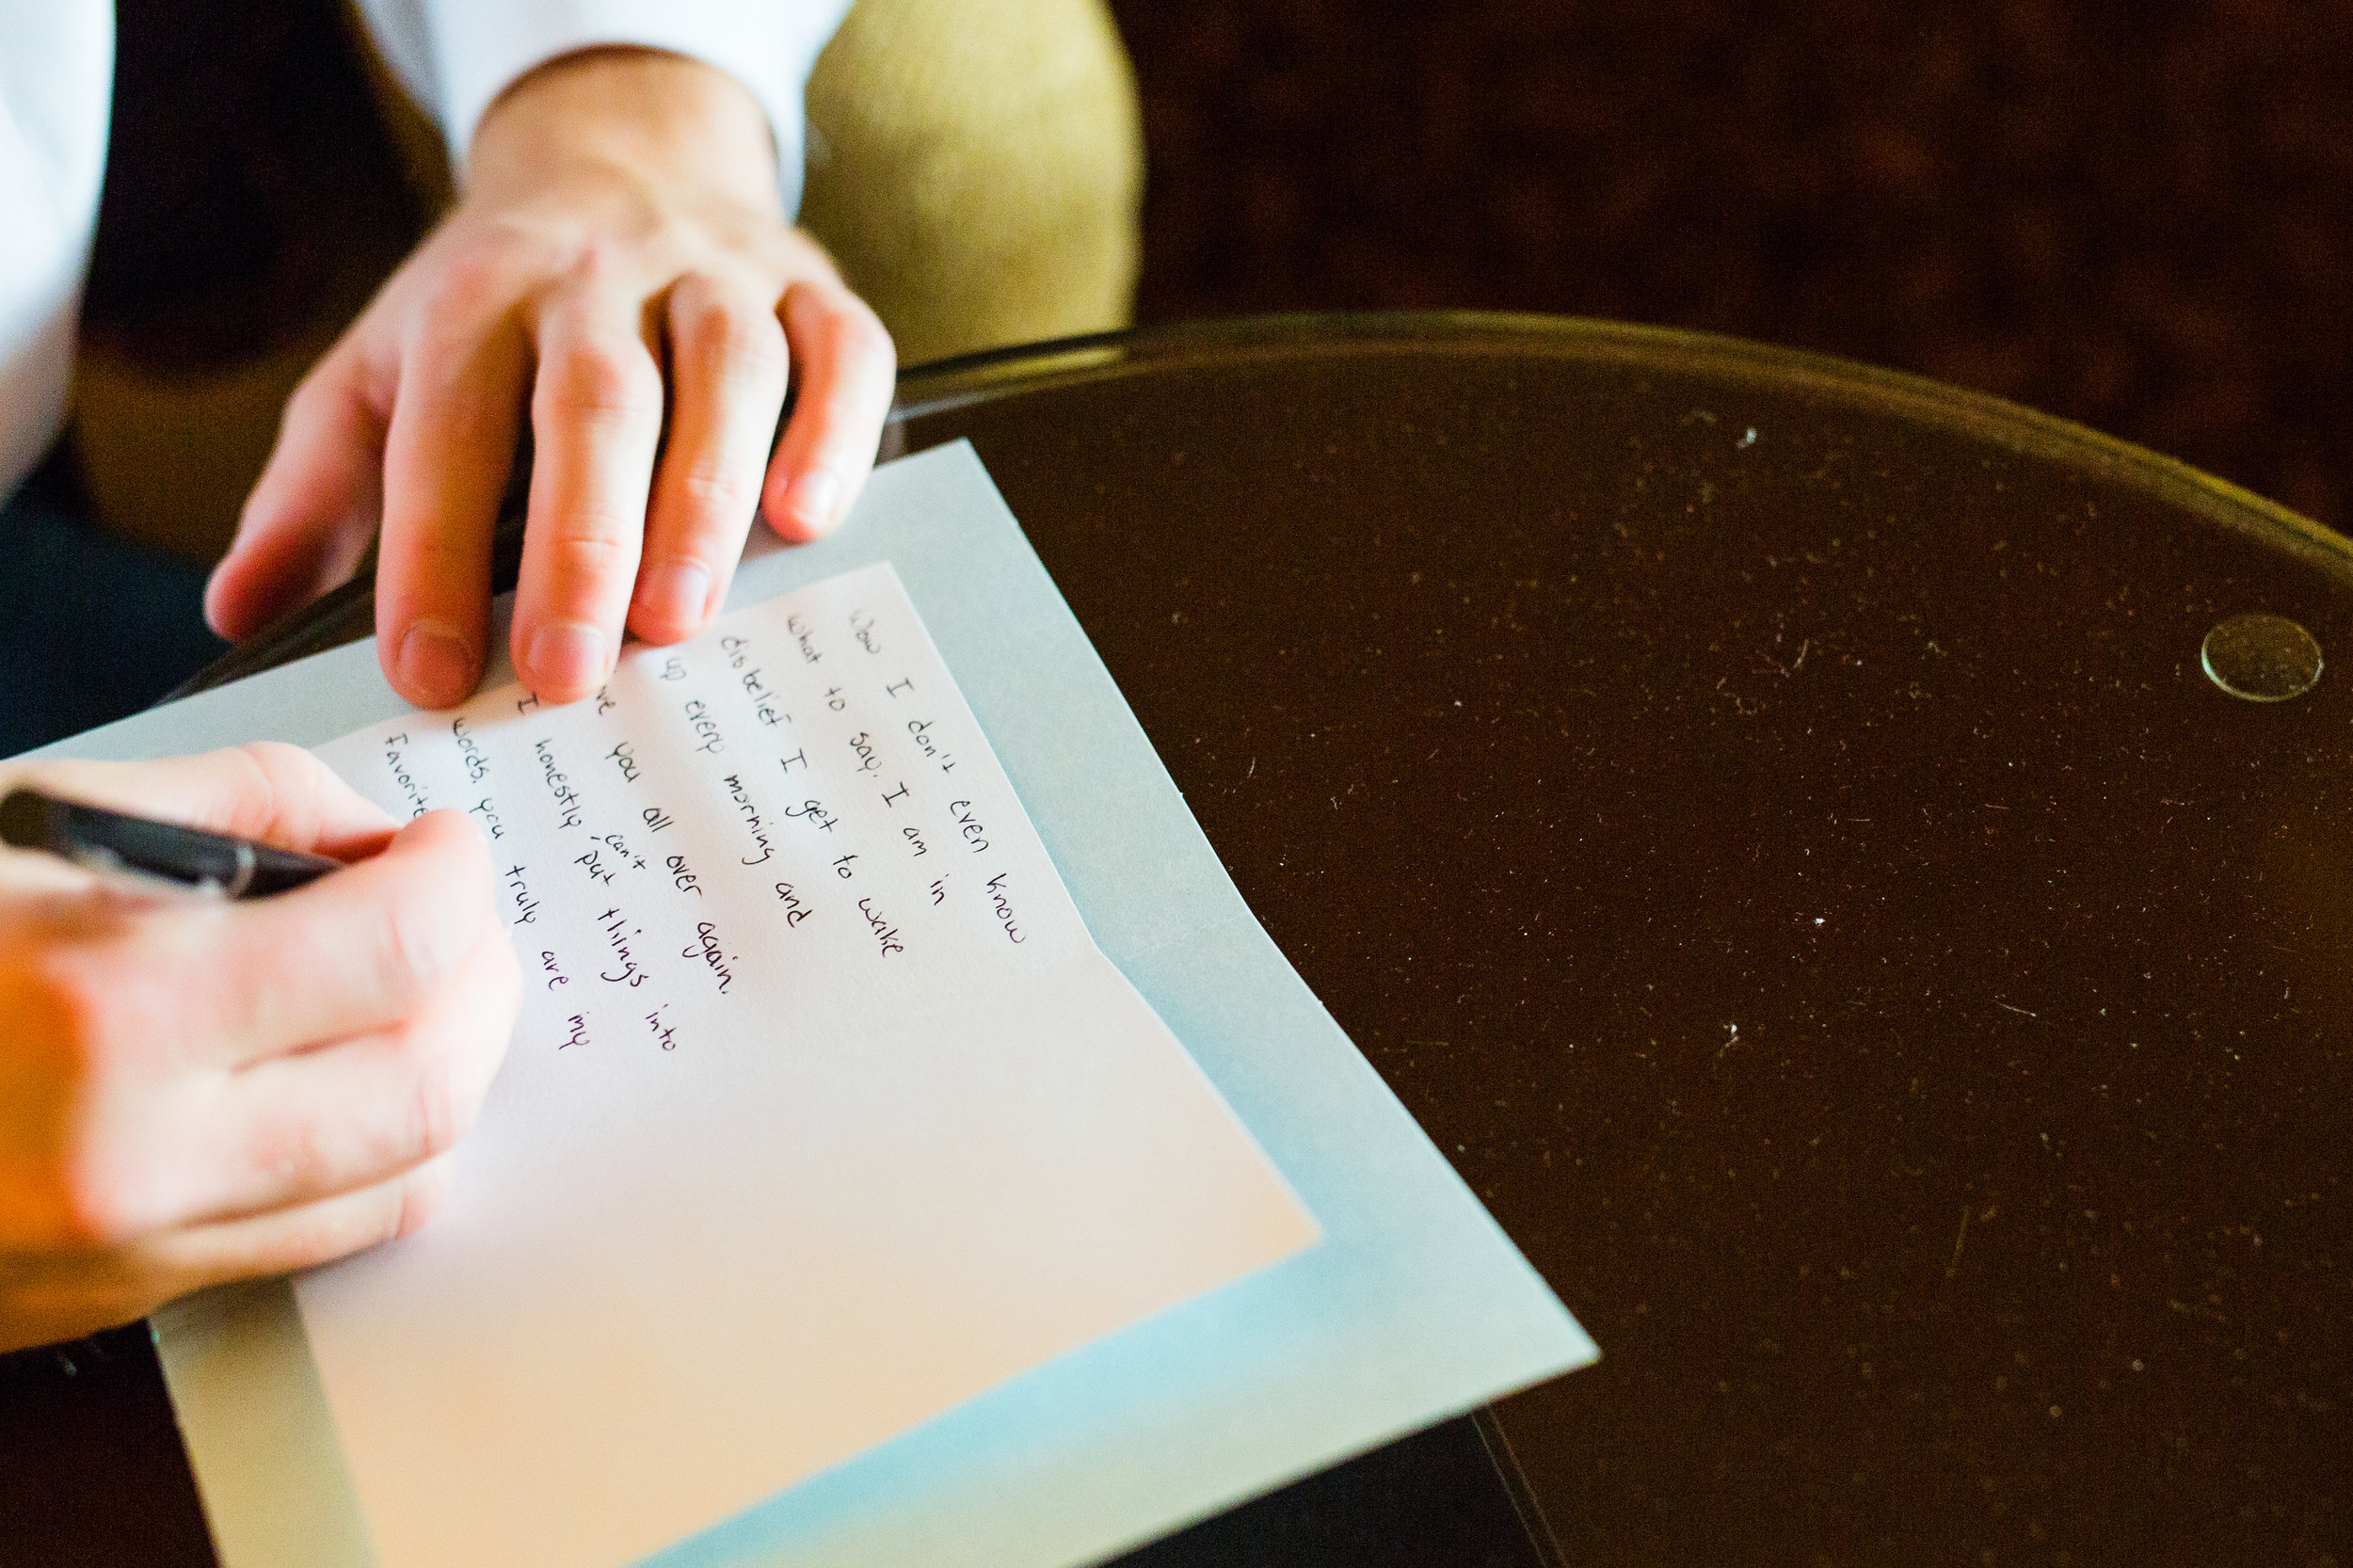 Wow I don't even know
what to say. I am in
disbelief I get to wake
up every morning and
you all over again.
I honestly can't put things into
words. you truly are my
Favorite